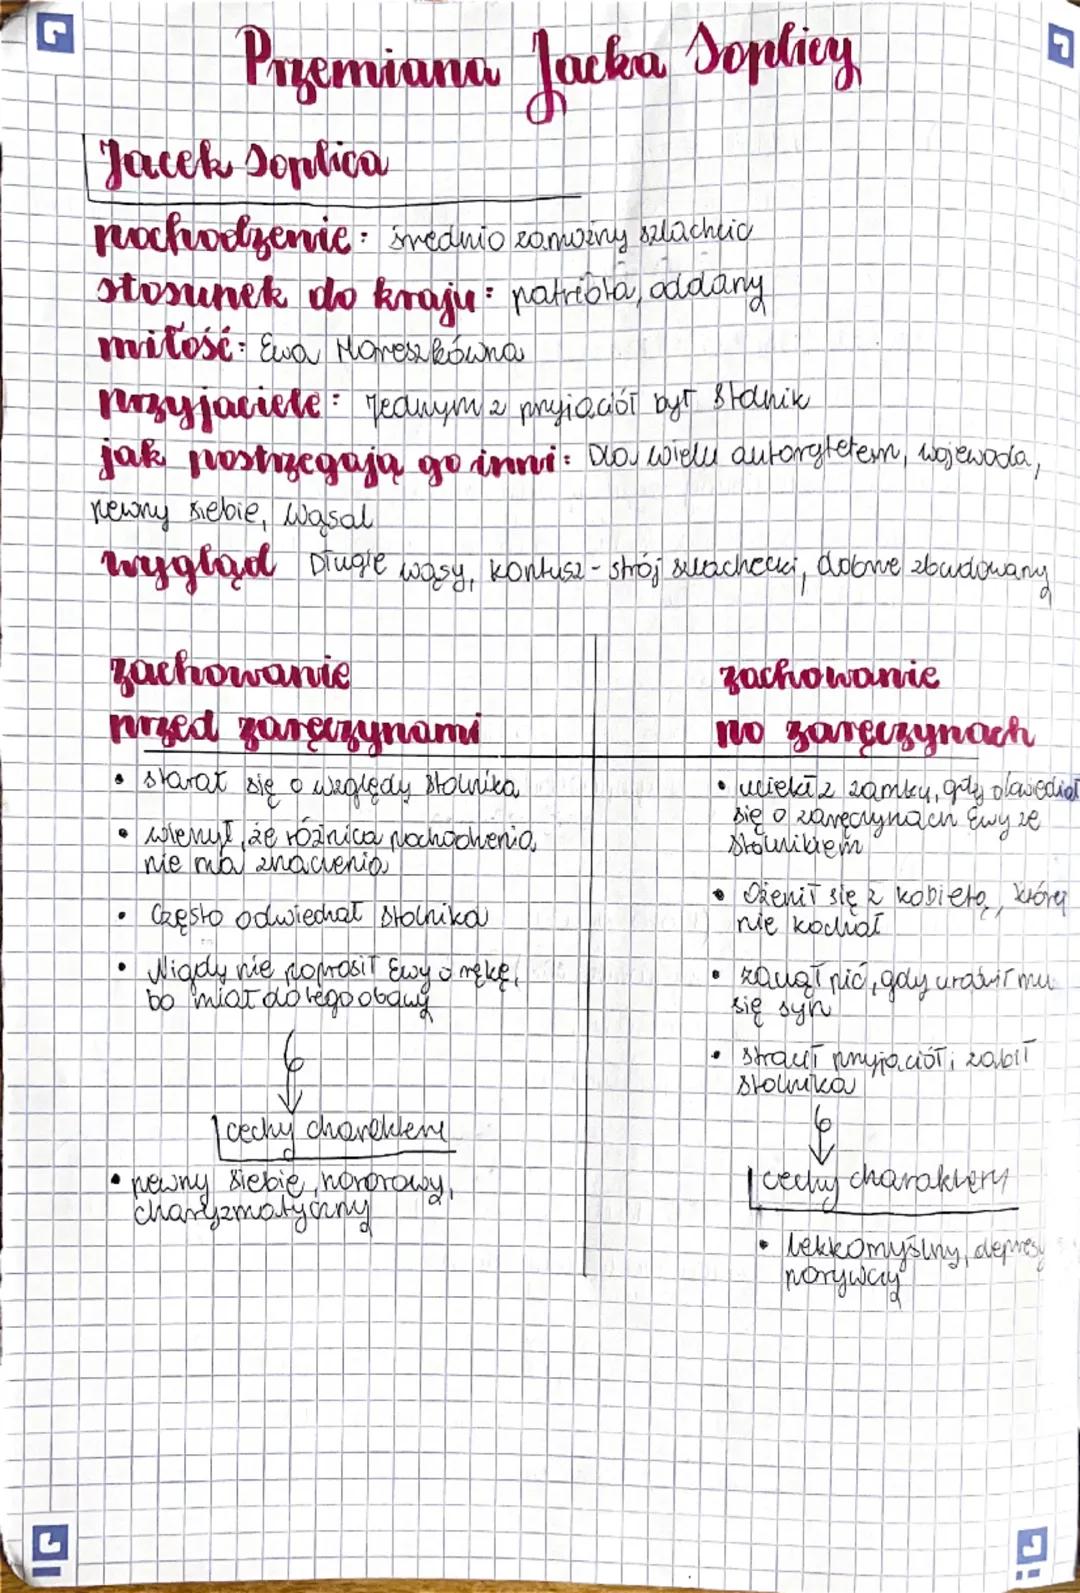 Przemiana Jacka Soplicy
Jacek Soplica
pochodzenie: średnio zamożny szlachcic
stosunek do kraju: patriota, oddany
miłość: Ewa Horeszkówna
przyjaciele: jednym z przyjaciół był Stolnik
jak postrzegają go inni: Dla wielu autorytetem, wojewoda,
pewny siebie, wąsal
wygląd Długie wąsy, kontusz - strój szlachecki, dobrze zbudowany
zachowanie
przed zaręczynami
• starał się o względy stolnika
• wierzył, że różnica pochodzenia
nie ma znaczenia
• Często odwiedzał stolnika
• Nigdy nie poprosił Ewy o rękę,
bo miał do tego obawy
cechy charakteru
• pewny siebie, honorowy,
charyzmatyczny
zachowanie
po zaręczynach
• uciekł z zamku, gdy dowiedział
się o zaręczynach Ewy ze
stolnikiem
• Ożenił się z kobietą, której
nie kochał
• zaczął pić, gdy urodził mu
się syn
• stracił przyjaciół i zabił
stolnika
cechy charakteru
• lekkomyślny,
porywczy